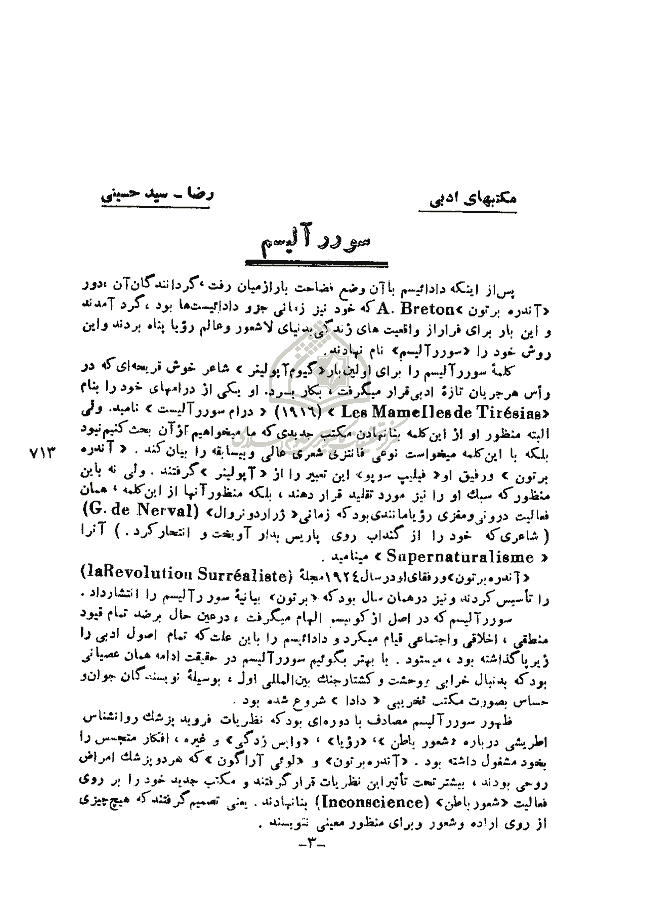 مکتبهای ادبی
رضا - سید حسینی
سورر آلیسم
پس از اینکه دادائیسم با آن وضع فضاحت بار از میان رفت، گردانندگان آن، دور
«آندره برتون» A. Breton که خود نیز زمانی جزو دادائیست‌ها بود، گرد آمدند
و این بار برای فرار از واقعیت های زندگی بدنیای لاشعور و عالم رؤیا پناه بردند و این
روش خود را «سوررآلیسم» نام نهادند.
کلمهٔ سوررآلیسم را برای اولین بار «گیوم آپولینر» شاعر خوش قریحه‌ای که در
رأس هر جریان تازهٔ ادبی قرار میگرفت، بکار برد. او یکی از درامهای خود را بنام
«Les Mamelles de Tirésias» (۱۹۱۶) «درام سوررآلیست» نامید. ولی
البته منظور او از این کلمه بنانهادن مکتب جدیدی که ما میخواهیم از آن بحث کنیم نبود
بلکه با این کلمه میخواست نوعی فانتزی شعری عالی و بیسابقه را بیان کند. «آندره
۷۱۳
برتون» و رفیق او «فیلیپ سوپو» این تعبیر را از «آپولینر» گرفتند. ولی نه باین
منظور که سبك او را نیز مورد تقلید قرار دهند، بلکه منظور آنها از این کلمه، همان
فعالیت درونی و مغزی رؤیا مانندی بود که زمانی «ژرار دو نروال» (G. de Nerval)
(شاعری که خود را از گنداب روی پاریس بدار آویخت و انتحار کرد.) آنرا
«Supernaturalisme» مینامید.
«آندره برتون» و رفقای او در سال ۱۹۲۴ مجلهٔ (la Revolution Surréaliste)
را تأسیس کردند و نیز در همان سال بود که «برتون» بیانیهٔ سوررآلیسم را انتشار داد.
سوررآلیسم که در اصل از کوبیسم الهام میگرفت، در عین حال بر ضد تمام قیود
منطقی، اخلاقی و اجتماعی قیام میکرد و دادائیسم را باین علت که تمام اصول ادبی را
زیر پا گذاشته بود، میستود. یا بهتر بگوئیم سوررآلیسم در حقیقت ادامه همان عصیانی
بود که بدنبال خرابی و وحشت و کشتار جنك بین‌المللی اول، بوسیلهٔ نویسندگان جوان و
حساس بصورت مکتب تخریبی «دادا» شروع شده بود.
ظهور سوررآلیسم مصادف با دوره‌ای بود که نظریات فروید پزشك روانشناس
اطریشی درباره «شعور باطن»، «رؤیا»، «واپس زدگی» و غیره، افکار متجسس را
بخود مشغول داشته بود. «آندره برتون» و «لوئی آراگون» که هر دو پزشك امراض
روحی بودند، بیشتر تحت تأثیر این نظریات قرار گرفتند و مکتب جدید خود را بر روی
فعالیت «شعور باطن» (Inconscience) بنانهادند. یعنی تصمیم گرفتند که هیچ چیزی
از روی اراده و شعور و برای منظور معینی ننویسند.
-۳-